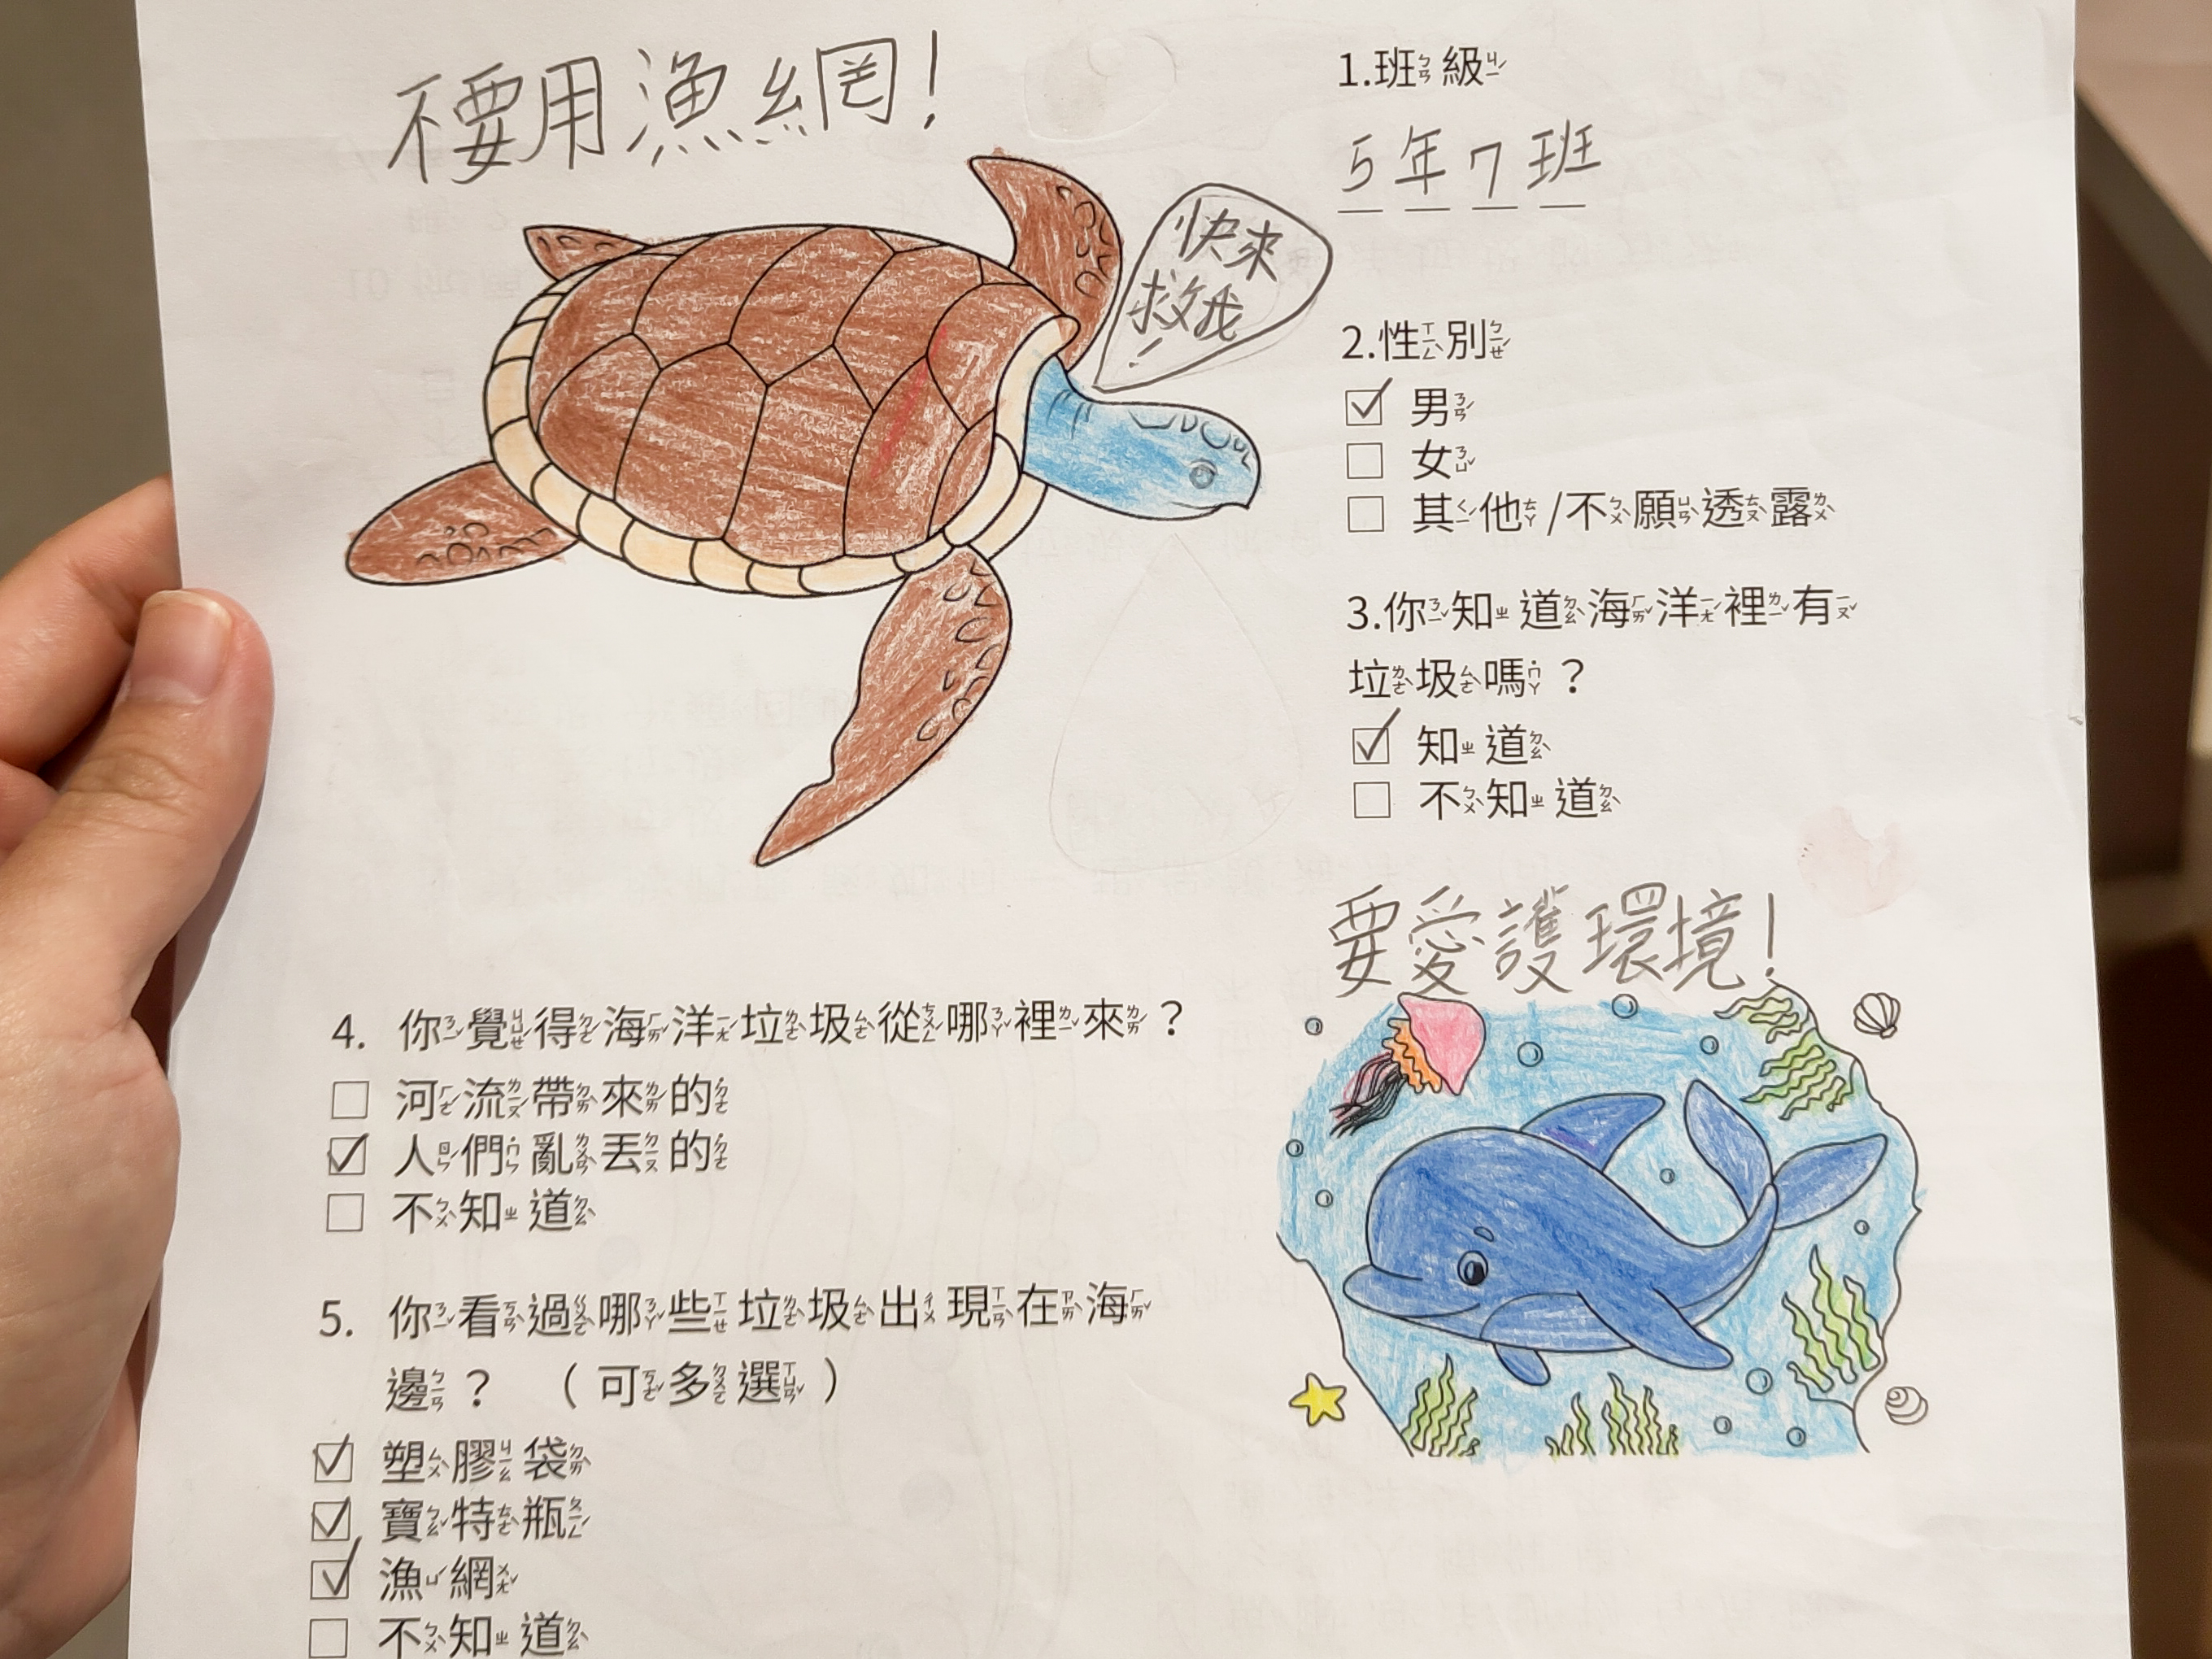 不要用漁網!
快來
救我
!
1.班ㄅㄢ級ㄐㄧˊ
5年7班
2.性ㄒㄧㄥˋ別ㄅㄧㄝˊ
☑ 男ㄋㄢˊ
☐ 女ㄋㄩˇ
☐ 其ㄑㄧˊ他ㄊㄚ/不ㄅㄨˊ願ㄩㄢˋ透ㄊㄡˋ露ㄌㄨˋ
3.你ㄋㄧˇ知ㄓ道ㄉㄠˋ海ㄏㄞˇ洋ㄧㄤˊ裡ㄌㄧˇ有ㄧㄡˇ
垃ㄌㄜˋ圾ㄙㄜˋ嗎˙ㄇㄚ？
☑ 知ㄓ道ㄉㄠˋ
☐ 不ㄅㄨˋ知ㄓ道ㄉㄠˋ
要愛護環境!
4. 你ㄋㄧˇ覺ㄐㄩㄝˊ得ㄉㄜˊ海ㄏㄞˇ洋ㄧㄤˊ垃ㄌㄜˋ圾ㄙㄜˋ從ㄘㄨㄥˊ哪ㄋㄚˇ裡ㄌㄧˇ來ㄌㄞˊ？
☐ 河ㄏㄜˊ流ㄌㄧㄡˊ帶ㄉㄞˋ來ㄌㄞˊ的˙ㄉㄜ
☑ 人ㄖㄣˊ們˙ㄇㄣ亂ㄌㄨㄢˋ丟ㄉㄧㄡ的˙ㄉㄜ
☐ 不ㄅㄨˋ知ㄓ道ㄉㄠˋ
5. 你ㄋㄧˇ看ㄎㄢˋ過ㄍㄨㄛˋ哪ㄋㄚˇ些ㄒㄧㄝ垃ㄌㄜˋ圾ㄙㄜˋ出ㄔㄨ現ㄒㄧㄢˋ在ㄗㄞˋ海ㄏㄞˇ
邊ㄅㄧㄢ？（可ㄎㄜˇ多ㄉㄨㄛ選ㄒㄩㄢˇ）
☑ 塑ㄙㄨˋ膠ㄐㄧㄠ袋ㄉㄞˋ
☑ 寶ㄅㄠˇ特ㄊㄜˋ瓶ㄆㄧㄥˊ
☑ 漁ㄩˊ網ㄨㄤˇ
☐ 不ㄅㄨˋ知ㄓ道ㄉㄠˋ